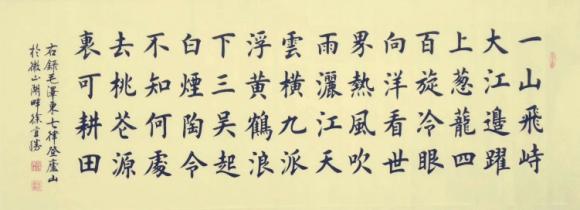 一山飛峙
大江邊躍
上葱龍四
百旋冷眼
向洋看世
界熱風吹
雨灑江天
雲橫九派
浮黃鶴浪
下三吳起
白煙陶令
不知何處
去桃花源
裏可耕田
右錄毛澤東七律登廬山
於微山湖畔徐